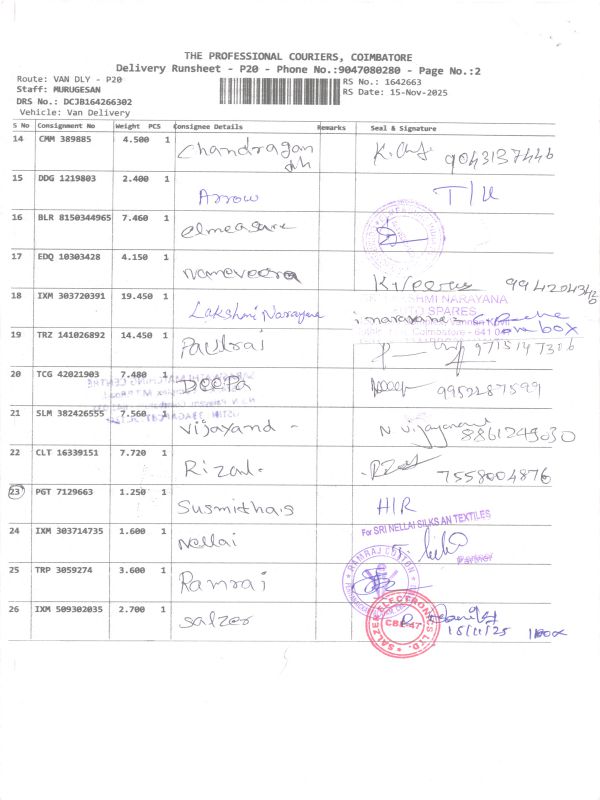 THE PROFESSIONAL COURIERS, COIMBATORE
Delivery Runsheet - P20 - Phone No.:9047080280 - Page No.:2
Route: VAN DLY - P20
Staff: MURUGESAN
DRS No.: DCJB164266302
Vehicle: Van Delivery
RS No.: 1642663
RS Date: 15-Nov-2025
S No Consignment No Weight PCS Consignee Details Remarks Seal & Signature
14 CMM 389885 4.500 1 Chandragan 9043137446
15 DDG 1219803 2.400 1 Arrow
16 BLR 8150344965 7.460 1 elmeasure
17 EDQ 10303428 4.150 1 Nameveera
18 IXM 303720391 19.450 1 Lakshmi Narayana
LAKSHMI NARAYANA
SPARES
19 TRZ 141026892 14.450 1 Paulraj
20 TCG 42021903 7.480 1 DEEPA 9952287599
21 SLM 382426555 7.560 1 Vijayand - N Vijayanand 8861249030
22 CLT 16339151 7.720 1 Rizal. 7558004876
23 PGT 7129663 1.250 1 Susmitha.s H/R
24 IXM 303714735 1.600 1 Nellai
For SRI NELLAI SILKS AN TEXTILES
Partner
25 TRP 3059274 3.600 1 Ramraj
RAMRAJ COTTON
26 IXM 509302035 2.700 1 Salzer
SALZER ELECTRONICS LTD.
CBE-47
15/11/25